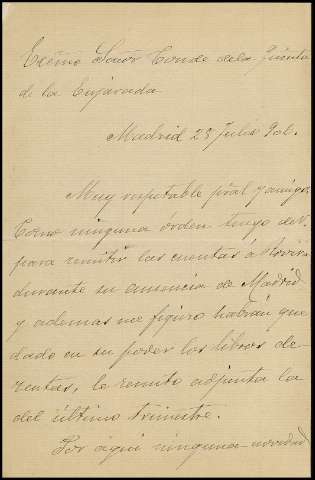 Excmo Señor Conde de la Quinta
de la Enjarada
Madrid 23 Julio 901.
Muy respetable pral y amigo:
Como ninguna órden tengo de V.
para remitir las cuentas á
durante su ausencia de Madrid
y ademas me figuro habrán que
dado en su poder los libros de
rentas, le remito adjunta la
del último trimestre.
Por aquí ninguna novedad